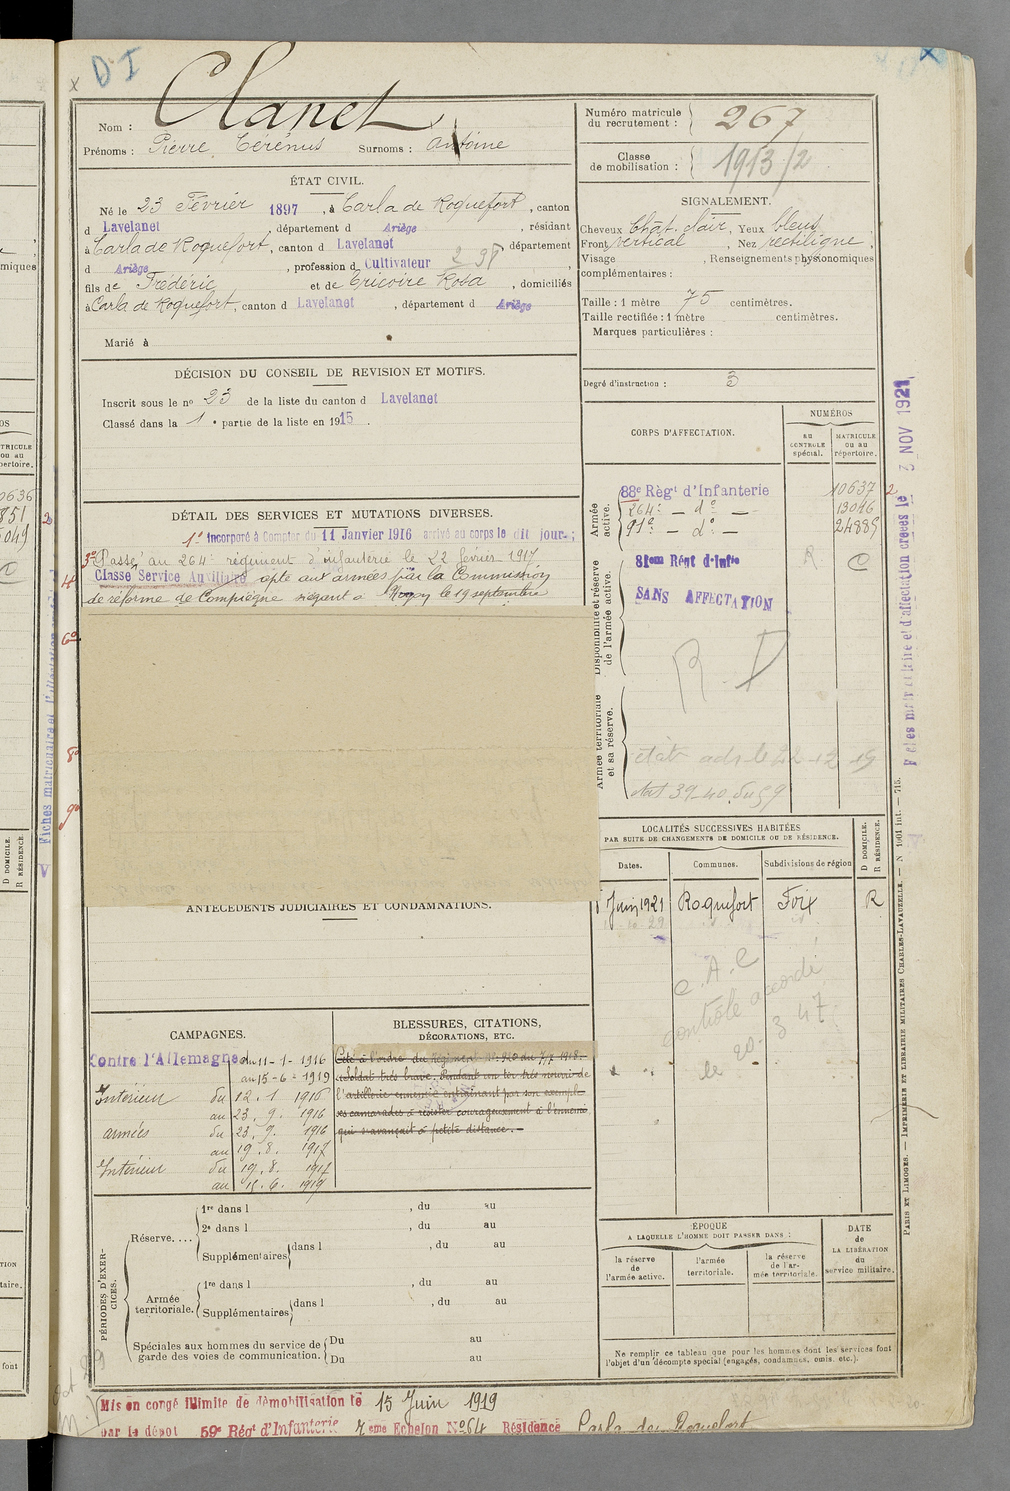 D I
Nom : Clanet
Prénoms : Pierre Térénus Surnoms : Antoine
Numéro matricule du recrutement : 267
Classe de mobilisation : 1913/2
ÉTAT CIVIL.
Né le 23 Février 1897, à Carla de Roquefort, canton
d Lavelanet, département d Ariège, résidant
à Carla de Roquefort, canton d Lavelanet, département
d Ariège, profession d Cultivateur
fils de Frédéric et de Ericoire Rosa, domiciliés
à Carla de Roquefort, canton d Lavelanet, département d Ariège
Marié à
SIGNALEMENT.
Cheveux Chât. clair, Yeux bleus
Front vertical, Nez rectiligne,
Visage , Renseignements physionomiques
complémentaires :
Taille : 1 mètre 75 centimètres.
Taille rectifiée : 1 mètre centimètres.
Marques particulières :
Degré d'instruction : 3
DÉCISION DU CONSEIL DE REVISION ET MOTIFS.
Inscrit sous le no 23 de la liste du canton d Lavelanet
Classé dans la 1 e partie de la liste en 1915.
DÉTAIL DES SERVICES ET MUTATIONS DIVERSES.
1o Incorporé à Compter du 11 Janvier 1916 arrivé au corps le dit jour ;
3o Passé au 264e régiment d'infanterie le 22 février 1917
4o Classe Service Auxiliaire apte aux armées par la Commission
de réforme de Compiègne siégeant à Noyon le 19 septembre
6o
8o
9o
CORPS D'AFFECTATION.
NUMÉROS
au CONTROLE spécial.
MATRICULE ou au répertoire.
Armée active.
88e Régt d'Infanterie 10637 2
264e — do — 13046
91e — do — 24885
Disponibilité et réserve de l'armée active.
81em Rént d'Infie R C
SANS AFFECTATION
R. D
Armée territoriale et sa réserve.
Fiches matriculaire et d'affectation créées le 3 NOV 1921
Fiches matriculaire et d'affectation
LOCALITÉS SUCCESSIVES HABITÉES
PAR SUITE DE CHANGEMENTS DE DOMICILE OU DE RÉSIDENCE.
Dates. Communes. Subdivisions de région D DOMICILE. R RÉSIDENCE.
Juin 1921 Roquefort Foix R
C.A.C
contrôle accordé
le 20. 3 47
ANTÉCÉDENTS JUDICIAIRES ET CONDAMNATIONS.
CAMPAGNES.
Contre l'Allemagne du 11-1-1916
au 15-6-1919
Intérieur du 12. 1 1916
au 23. 9. 1916
armées du 23. 9. 1916
au 19. 8. 1917
Intérieur du 19. 8. 1917
au 15. 6. 1919
BLESSURES, CITATIONS,
DÉCORATIONS, ETC.
Cité à l'ordre du Régiment No 920 du 7/7 1918.
Soldat très brave. Pendant un tir très nourri de
l'artillerie ennemie entraînant par son exemple
ses camarades à résister courageusement à l'ennemi
qui s'avançait à petite distance. —
PÉRIODES D'EXERCICES.
Réserve....
1re dans l , du au
2e dans l , du au
Supplémentaires dans l , du au
Armée territoriale.
1re dans l , du au
Supplémentaires dans l , du au
Spéciales aux hommes du service de garde des voies de communication.
Du au
Du au
ÉPOQUE
A LAQUELLE L'HOMME DOIT PASSER DANS :
la réserve de l'armée active.
l'armée territoriale.
la réserve de l'armée territoriale.
DATE de LA LIBÉRATION du service militaire.
Ne remplir ce tableau que pour les hommes dont les services font
l'objet d'un décompte spécial (engagés, condamnés, omis, etc.).
PARIS ET LIMOGES. — IMPRIMERIE ET LIBRAIRIE MILITAIRES CHARLES-LAVAUZELLE. — N 1901 int. — 715.
Mis en congé illimité de démobilisation le 15 Juin 1919
par le dépôt 59e Régt d'Infanterie 7eme Echelon No 64 Résidence Carla de Roquefort